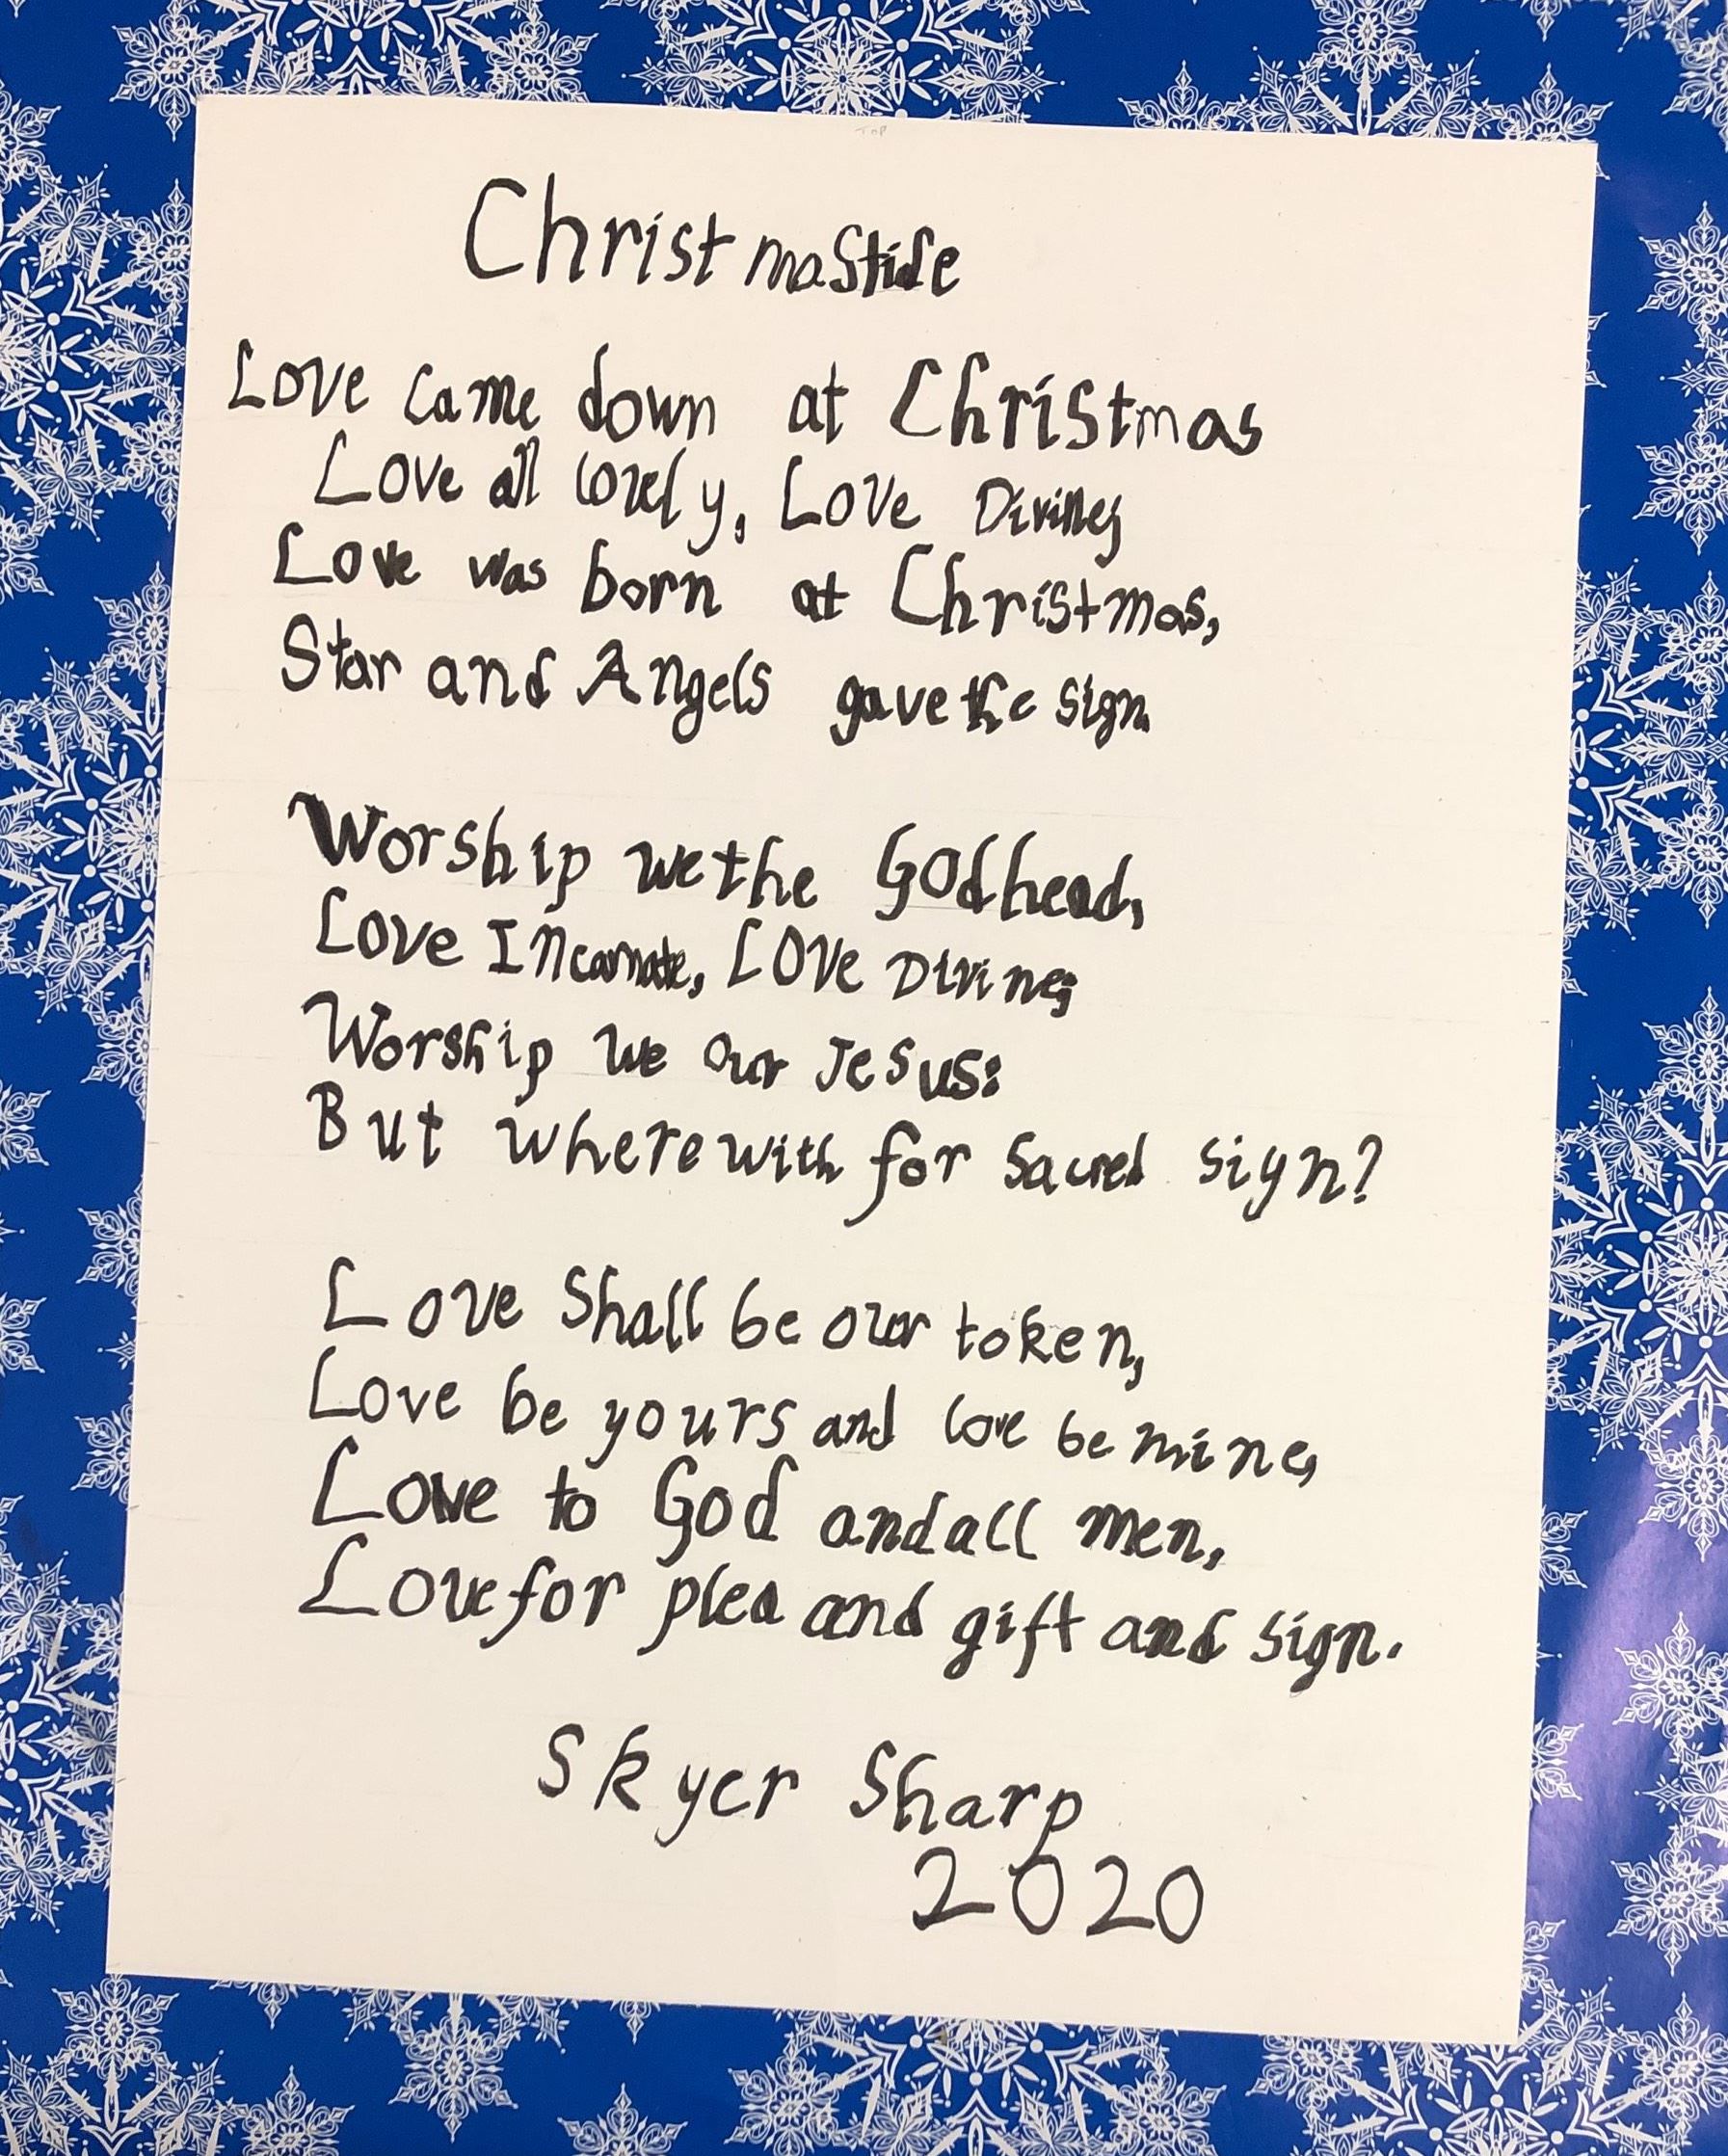 TOP
Christmastide
Love came down at Christmas
Love all lovely, Love Divine;
Love was born at Christmas,
Star and Angels gave the sign.
Worship we the Godhead,
Love Incarnate, Love Divine;
Worship we our Jesus:
But wherewith for sacred sign?
Love Shall be our token,
Love be yours and love be mine,
Love to God and all men,
Love for plea and gift and sign.
Skyer Sharp
2020